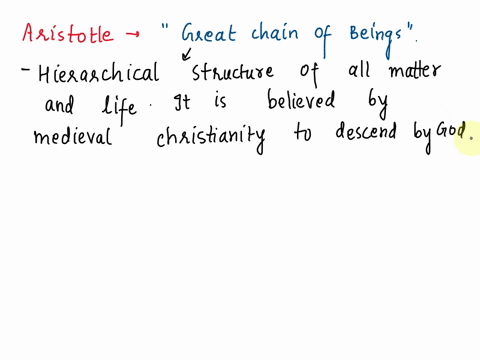 Aristotle → "Great chain of Beings".
- Hierarchical structure of all matter
and life. It is believed by
medieval christianity to descend by God.